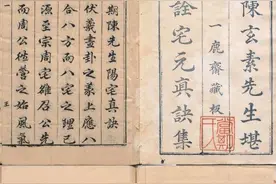 陳玄素先生堪
一鹿齋藏板
詮宅元眞訣集
期陳先生陽宅眞訣
伏羲畫卦之象上應八
合八方而八宅之理已
源至宗周宅雒召公先
而周公繼營之始風氣